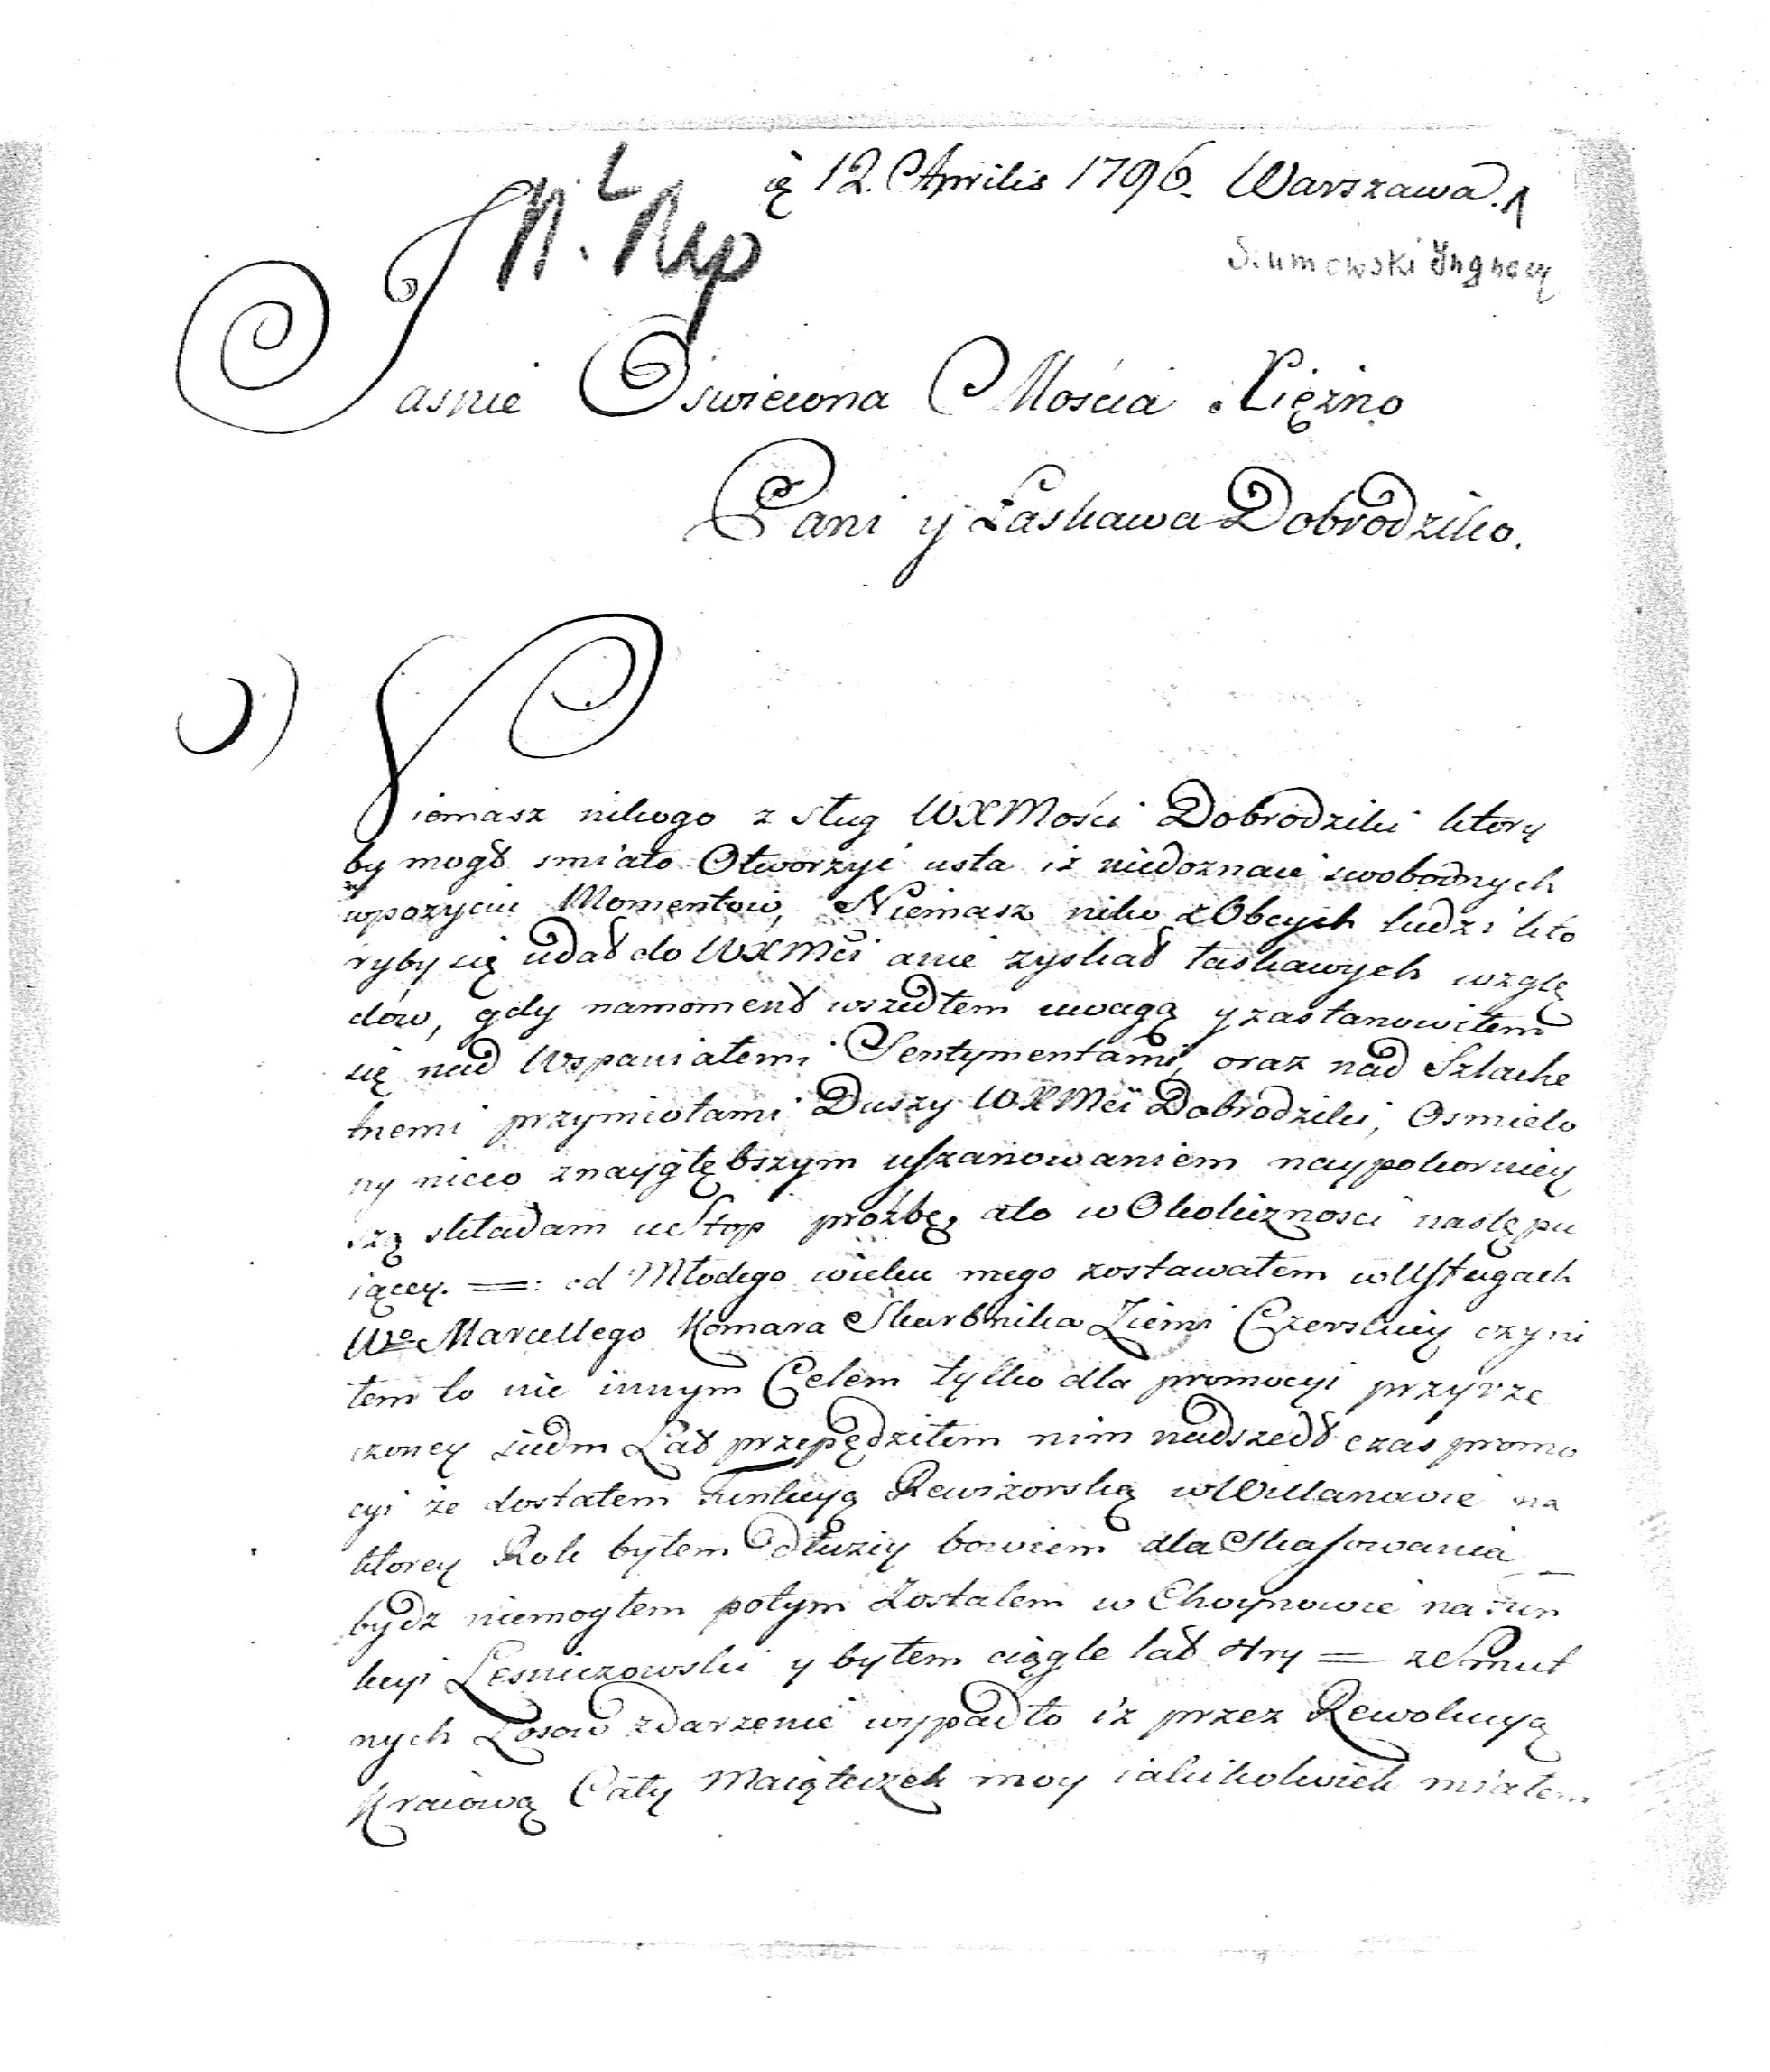 12. Aprilis 1796. Warszawa.
1
N. Rep
Szumowski Ignacy
Jasnie Oswiecona Mościa Xiężno
Pani y Łaskawa Dobrodziko.
Niemasz nikogo z sług WXMości Dobrodziki ktory
by mogł smiało Otworzyć usta iż niedoznaie swobodnych
wpozyciu Momentow, Niemasz niko z Obcych ludzi kto
ryby się udał do WXMci anie zyskał łaskawych wzglę
dów, gdy namoment wszedłem uwagą y zastanowiłem
się nad Wspaniałemi Sentymentami, oraz nad Szlache
tnemi przymiotami Duszy WXMci Dobrodziki, Osmielo
ny nieco znaygłębszym uszanowaniem naypokorniey
szą składam u Stop proźbę, ato w Okoliczności następu
iącey. =: od Młodego wieku mego zostawałem w Usługach
Wo Marcellego Komara Skarbnika Ziemi Czerskiey czyni
łem to nie innym Celem tylko dla promocyi przyrze
czoney siedm Lat przepędziłem nim nadszedł czas promo
cyi że dostałem Funkcyą Rewizorską w Willanowie na
ktorey Rok byłem dłuziy bowiem dla Skasowania
bydz niemogłem potym Zostałem w Choynowie na Fun
kcyi Lesniczowski y byłem ciągle lat try = ze Smut
nych Losow zdarzenie wypadło iż przez Rewolucyą
Kraiową Cały Maiąteczek moy iakikolwiek miałem